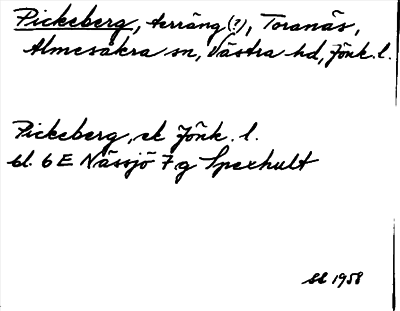 Pickeberg, terräng (?), Toranäs,
Almesåkra sn, Västra hd, Jönk. l.
Pickeberg, ek Jönk. l.
bl. 6 E Nässjö 7 g Spexhult
1958